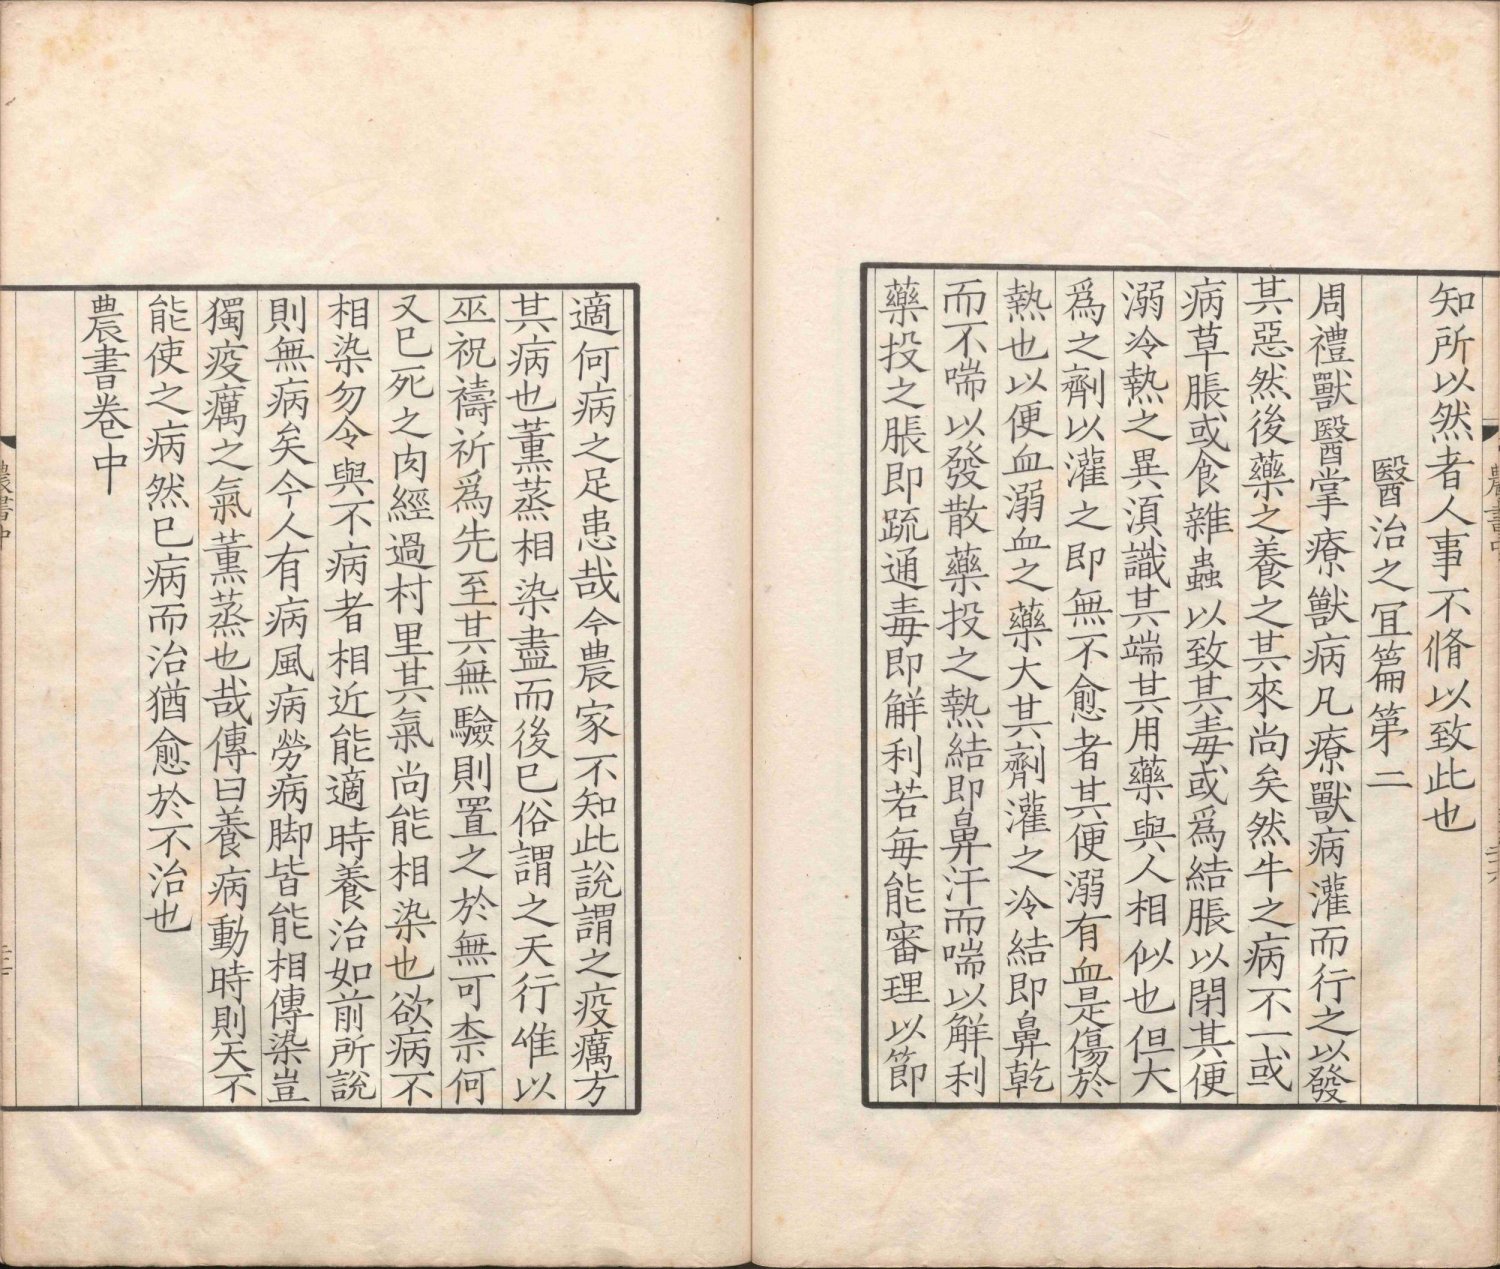 知所以然者人事不脩以致此也
醫治之冝篇第二
周禮獸醫掌療獸病凡療獸病灌而行之以發
其惡然後藥之養之其來尚矣然牛之病不一或
病草脹或食雜蟲以致其毒或爲結脹以閉其便
溺冷熱之異湏識其端其用藥與人相似也但大
爲之劑以灌之即無不愈者其便溺有血是傷於
熱也以便血溺血之藥大其劑灌之冷結即鼻乾
而不喘以發散藥投之熱結即鼻汗而喘以解利
藥投之脹即疏通毒即解利若每能審理以節
適何病之足患哉今農家不知此說謂之疫癘方
其病也薰蒸相染盡而後已俗謂之天行唯以
巫祝禱祈爲先至其無驗則置之於無可柰何
又已死之肉經過村里其氣尚能相染也欲病不
相染勿令與不病者相近能適時養治如前所說
則無病矣今人有病風病勞病脚皆能相傳染豈
獨疫癘之氣薰蒸也哉傳曰養病動時則天不
能使之病然已病而治猶愈於不治也
農書卷中
農書中
農書中